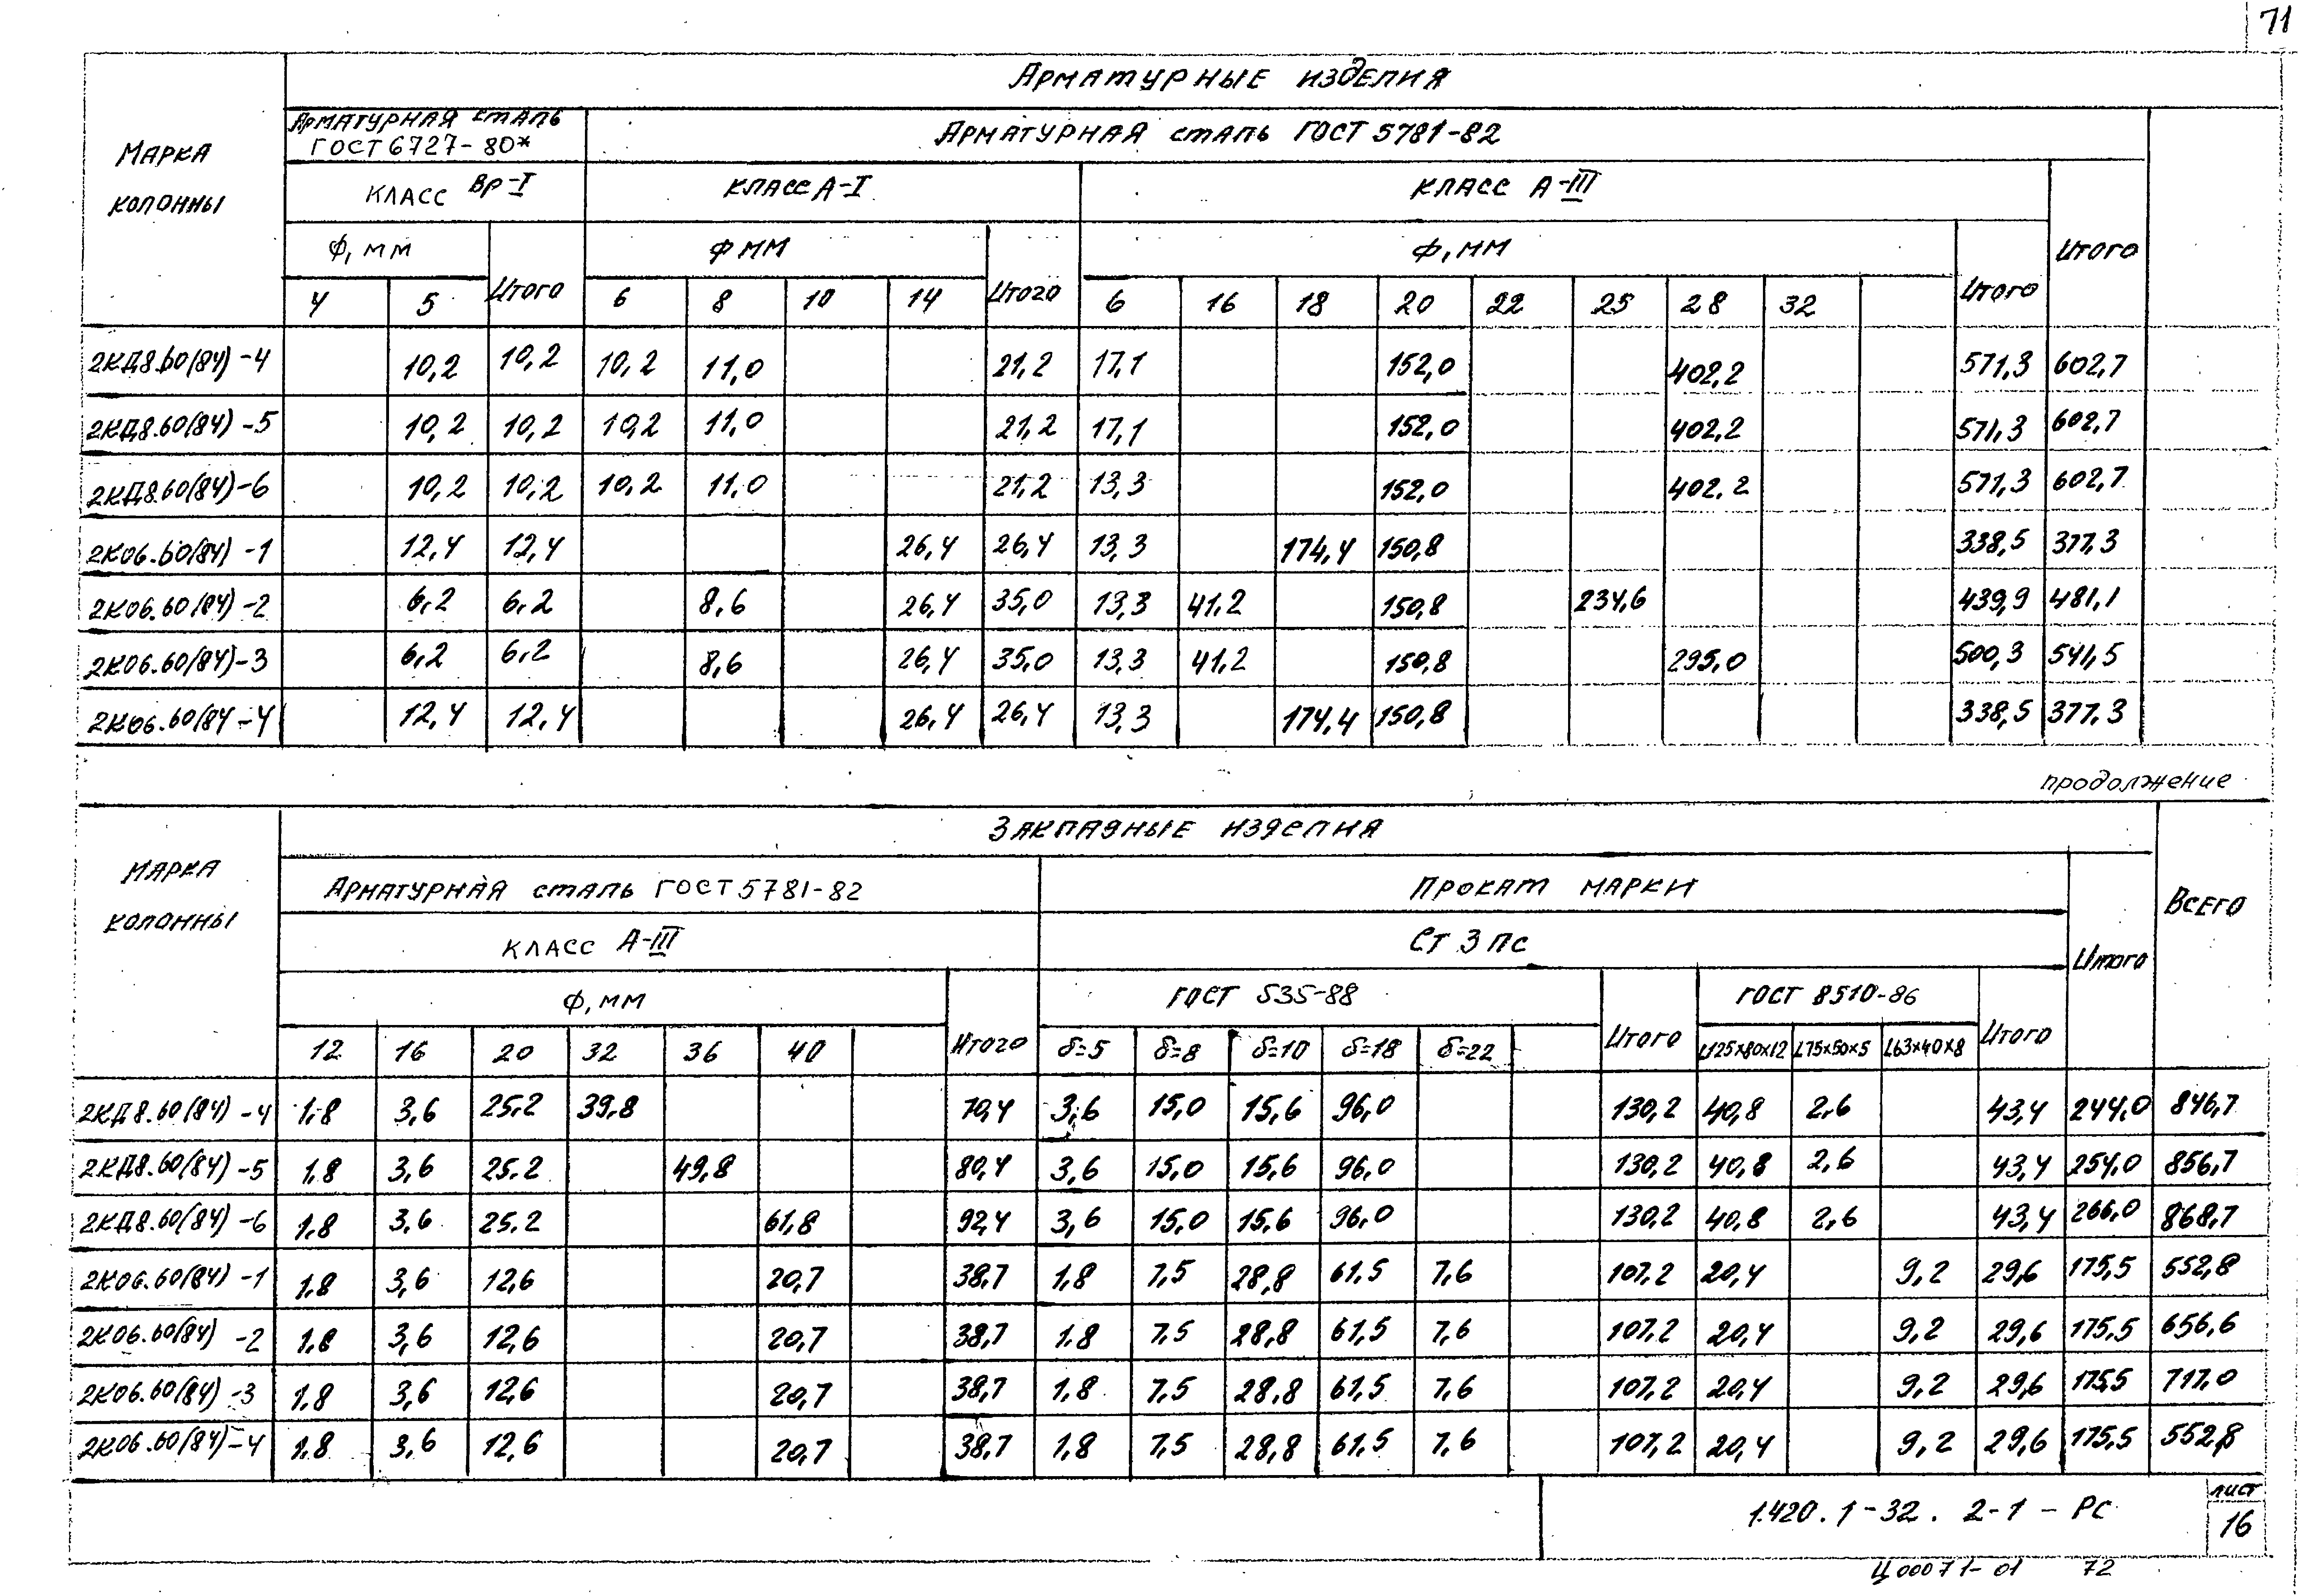 71
Арматурные изделия
Марка колонны
Арматурная сталь ГОСТ 6727-80*
Арматурная сталь ГОСТ 5781-82
класс Вр-I
класс А-I
класс А-III
Итого
ф, мм
Итого
ф мм
Итого
ф, мм
Итого
4 5 6 8 10 14 6 16 18 20 22 25 28 32
2КД8.60(84)-4 10,2 10,2 10,2 11,0 21,2 17,1 152,0 402,2 571,3 602,7
2КД8.60(84)-5 10,2 10,2 10,2 11,0 21,2 17,1 152,0 402,2 571,3 602,7
2КД8.60(84)-6 10,2 10,2 10,2 11,0 21,2 13,3 152,0 402,2 571,3 602,7
2К06.60(84)-1 12,4 12,4 26,4 26,4 13,3 174,4 150,8 338,5 377,3
2К06.60(84)-2 6,2 6,2 8,6 26,4 35,0 13,3 41,2 150,8 234,6 439,9 481,1
2К06.60(84)-3 6,2 6,2 8,6 26,4 35,0 13,3 41,2 150,8 295,0 500,3 541,5
2К06.60(84-4 12,4 12,4 26,4 26,4 13,3 174,4 150,8 338,5 377,3
продолжение
Закладные изделия
Марка колонны
Арматурная сталь ГОСТ 5781-82
Прокат марки
Всего
класс А-III
Ст 3 пс
Итого
ф, мм
Итого
ГОСТ 535-88
Итого
ГОСТ 8510-86
Итого
12 16 20 32 36 40 δ=5 δ=8 δ=10 δ=18 δ=22 L125х80х12 L75х50х5 L63х40х8
2КД8.60(84)-4 1,8 3,6 25,2 39,8 70,4 3,6 15,0 15,6 96,0 130,2 40,8 2,6 43,4 244,0 846,7
2КД8.60(84)-5 1,8 3,6 25,2 49,8 80,4 3,6 15,0 15,6 96,0 130,2 40,8 2,6 43,4 254,0 856,7
2КД8.60(84)-6 1,8 3,6 25,2 61,8 92,4 3,6 15,0 15,6 96,0 130,2 40,8 2,6 43,4 266,0 868,7
2К06.60(84)-1 1,8 3,6 12,6 20,7 38,7 1,8 7,5 28,8 61,5 7,6 107,2 20,4 9,2 29,6 175,5 552,8
2К06.60(84)-2 1,8 3,6 12,6 20,7 38,7 1,8 7,5 28,8 61,5 7,6 107,2 20,4 9,2 29,6 175,5 656,6
2К06.60(84)-3 1,8 3,6 12,6 20,7 38,7 1,8 7,5 28,8 61,5 7,6 107,2 20,4 9,2 29,6 175,5 717,0
2К06.60(84)-4 1,8 3,6 12,6 20,7 38,7 1,8 7,5 28,8 61,5 7,6 107,2 20,4 9,2 29,6 175,5 552,8
1.420.1-32. 2-1 - РС
лист
16
Ц00071-01 72